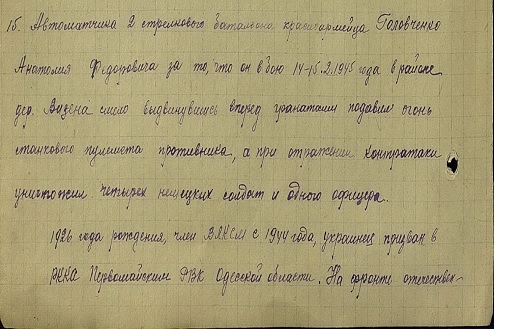 15. Автоматчика 2 стрелкового батальона красноармейца Головченко
Анатолия Федоровича за то, что он в бою 14-15.2.1945 года в районе
дер. Вазена смело выдвинувшись вперед гранатами подавил огонь
станкового пулемета противника, а при отражении контратаки
уничтожил четырех немецких солдат и одного офицера.
1926 года рождения, член ВЛКСМ с 1944 года, украинец призван в
РККА Первомайским РВК Одесской области. На фронте отечествен-